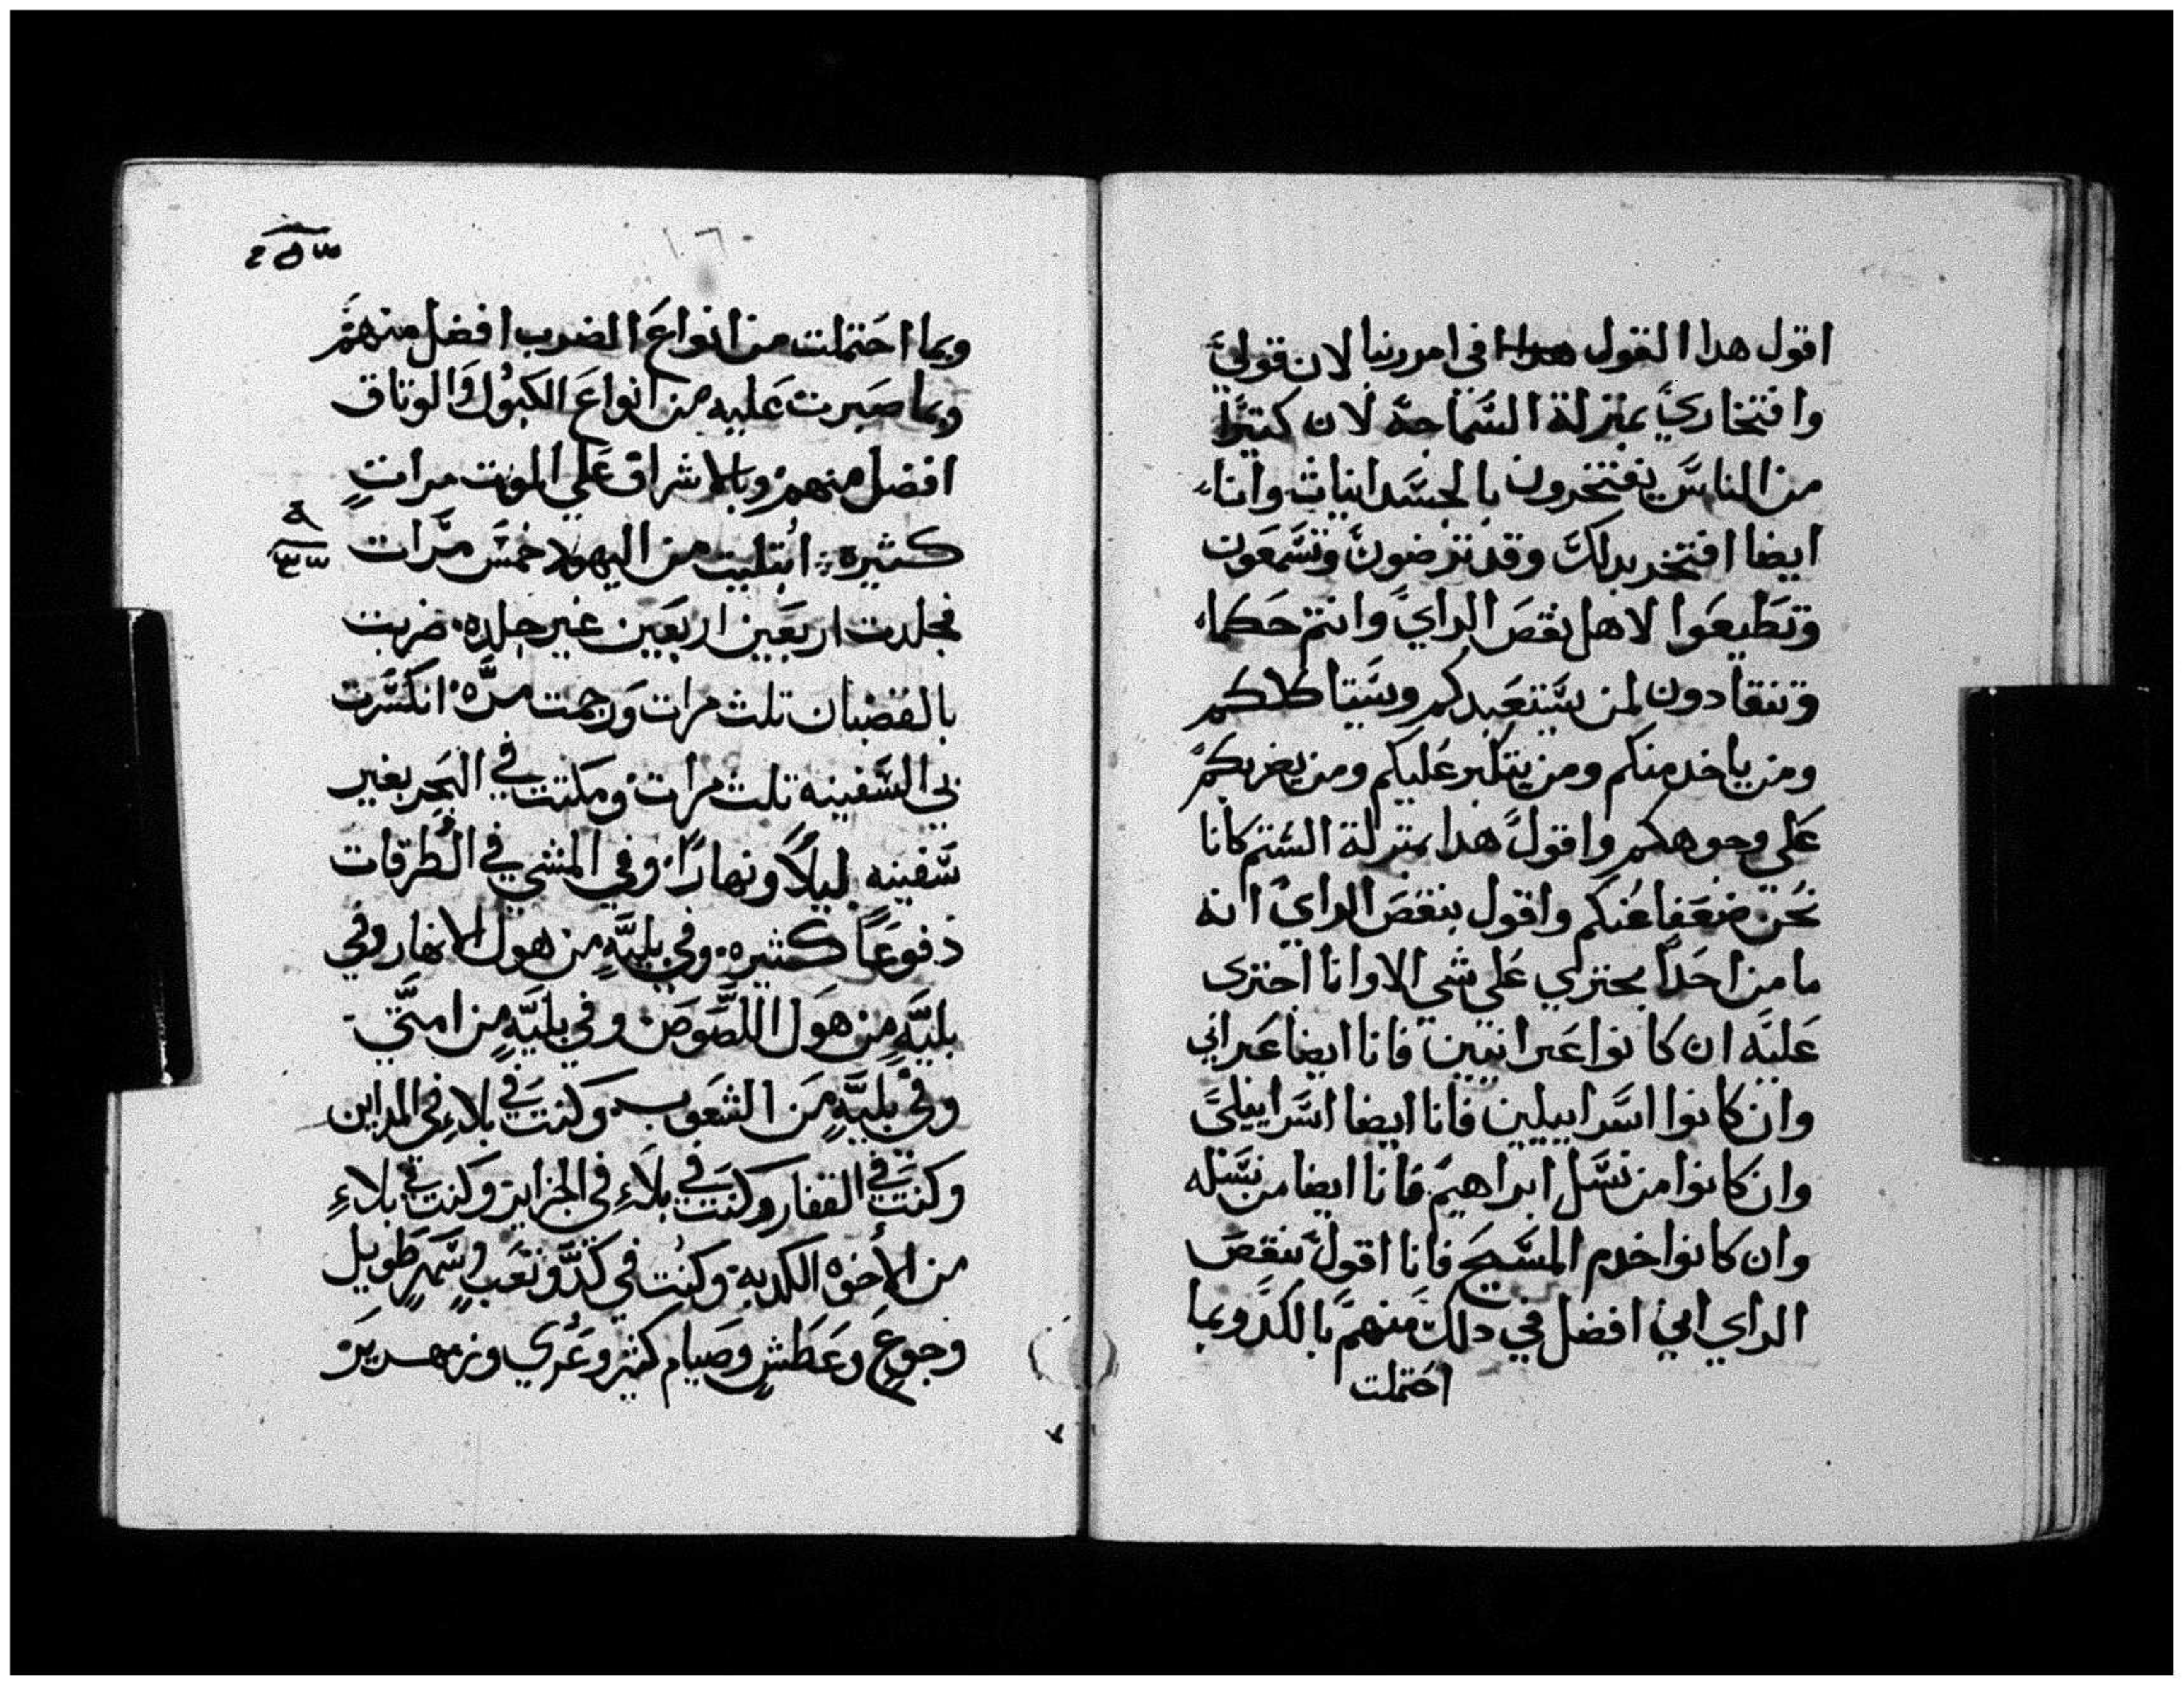 اقول هدا القول هدا في امر ربنا لان قولي
وافتخاري بمنزلة السماجه لان كتيرًا
من الناس يفتخرون بالجسدانيات وانا
ايضا افتخر بدلك وقد ترضون وتسمعون
وتطيعوا لاهل نقص الراي وانتم حكماء
وتنقادون لمن يستعبدكم ويستاكلكم
ومن ياخد منكم ومن يتكبر عليكم ومن يضربكم
على وجوهكم واقول هدا بمنزلة الشتم كانا
نحن ضعفا عنكم واقول بنقص الراي انه
ما من احدًا يجتري على شي الا وانا اجتري
عليه ان كانوا عبرانيين فانا ايضا عبراني
وان كانوا اسراييليين فانا ايضا اسراييلي
وان كانوا من نسل ابراهيم فانا ايضا من نسله
وان كانوا خدم المسيح فانا اقول بنقص
الراي اني افضل في دلك منهم بالكد وبما
احتملت
وبما احتملت من انواع الضرب افضل منهم
وبما صبرت عليه من انواع الكبول والوتاق
افضل منهم وبالاشراق علي الموت مراتٍ
كثيره ابتليت من اليهود خمس مرات
فجلدت اربعين اربعين غير جلده ضربت
بالقضبان تلث مرات ورجمت مرّه انكسرت
بي السفينه تلث مرات ومكتت في البحر بغير
سفينه ليلاً ونهارًا وفي المشي في الطرقات
دفوعًا كثيره وفي بليّهٍ من هول الانهار وفي
بليّهٍ من هول اللصوص وفي بليّهٍ من امتي
وفي بليّهٍ من الشعوب وكنت في بلاءٍ في المداين
وكنت في القفار وكنت في بلاءٍ في الجزاير وكنت في بلاءٍ
من الأخوه الكدبه وكنت في كدّ وتعبٍ وسهرٍ طويل
وجوعٍ وعطشٍ وصيام كثير وعُري وزمهرير